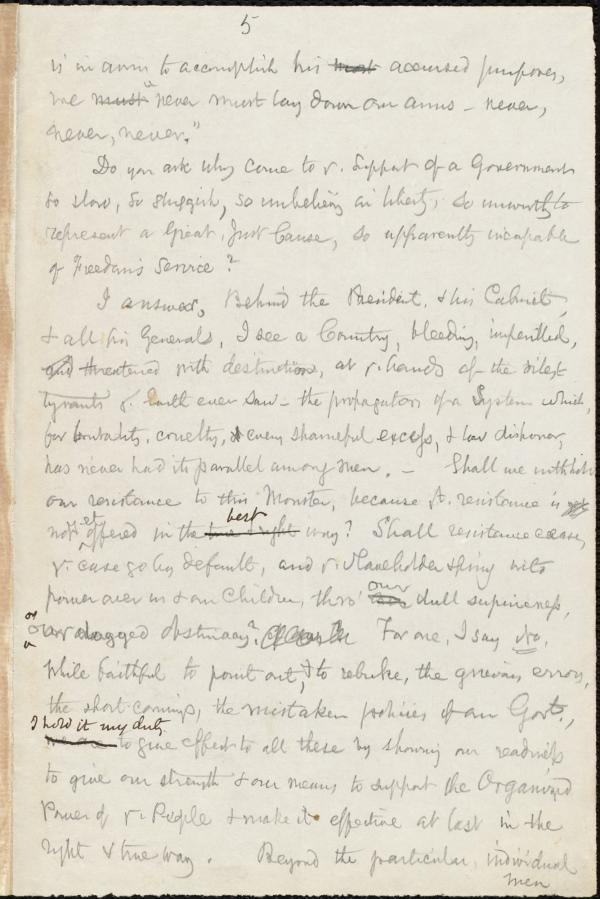 5
is in arms to accomplish his accursed purposes,
we must never must lay down our arms - never,
never, never."
Do you ask why come to r. Support of a Government
so slow, so sluggish, so unbelieving in liberty, so unworthy to
represent a Great, Just Cause, so apparently incapable
of Freedom's Service?
I answer, Behind the President, & his Cabinet,
& all his Generals, I see a Country, bleeding, imperilled,
and threatened with destruction, at r. hands of the vilest
tyrants r. Earth ever saw - the propagators of a System which,
for brutality, cruelty, & every shameful excess, & low dishonor,
has never had its parallel among men. - Shall we withhold
our resistance to this Monster, because r. resistance is
not yet offered in the true & right best way? Shall resistance cease,
r. case go by default, and r. slaveholder spring into
power over us & our Children, thro' our dull supineness,
or our dogged obstinacy? For one, I say No,
While faithful to point out, & to rebuke, the grievous errors,
the short-comings, the mistaken policies of our Govt.,
I hold it my duty
to give effect to all these by showing our readiness
to give our strength & our means to support the Organized
Power of r. People & make it effective at last in the
right & true way. Beyond the particular, individual
men